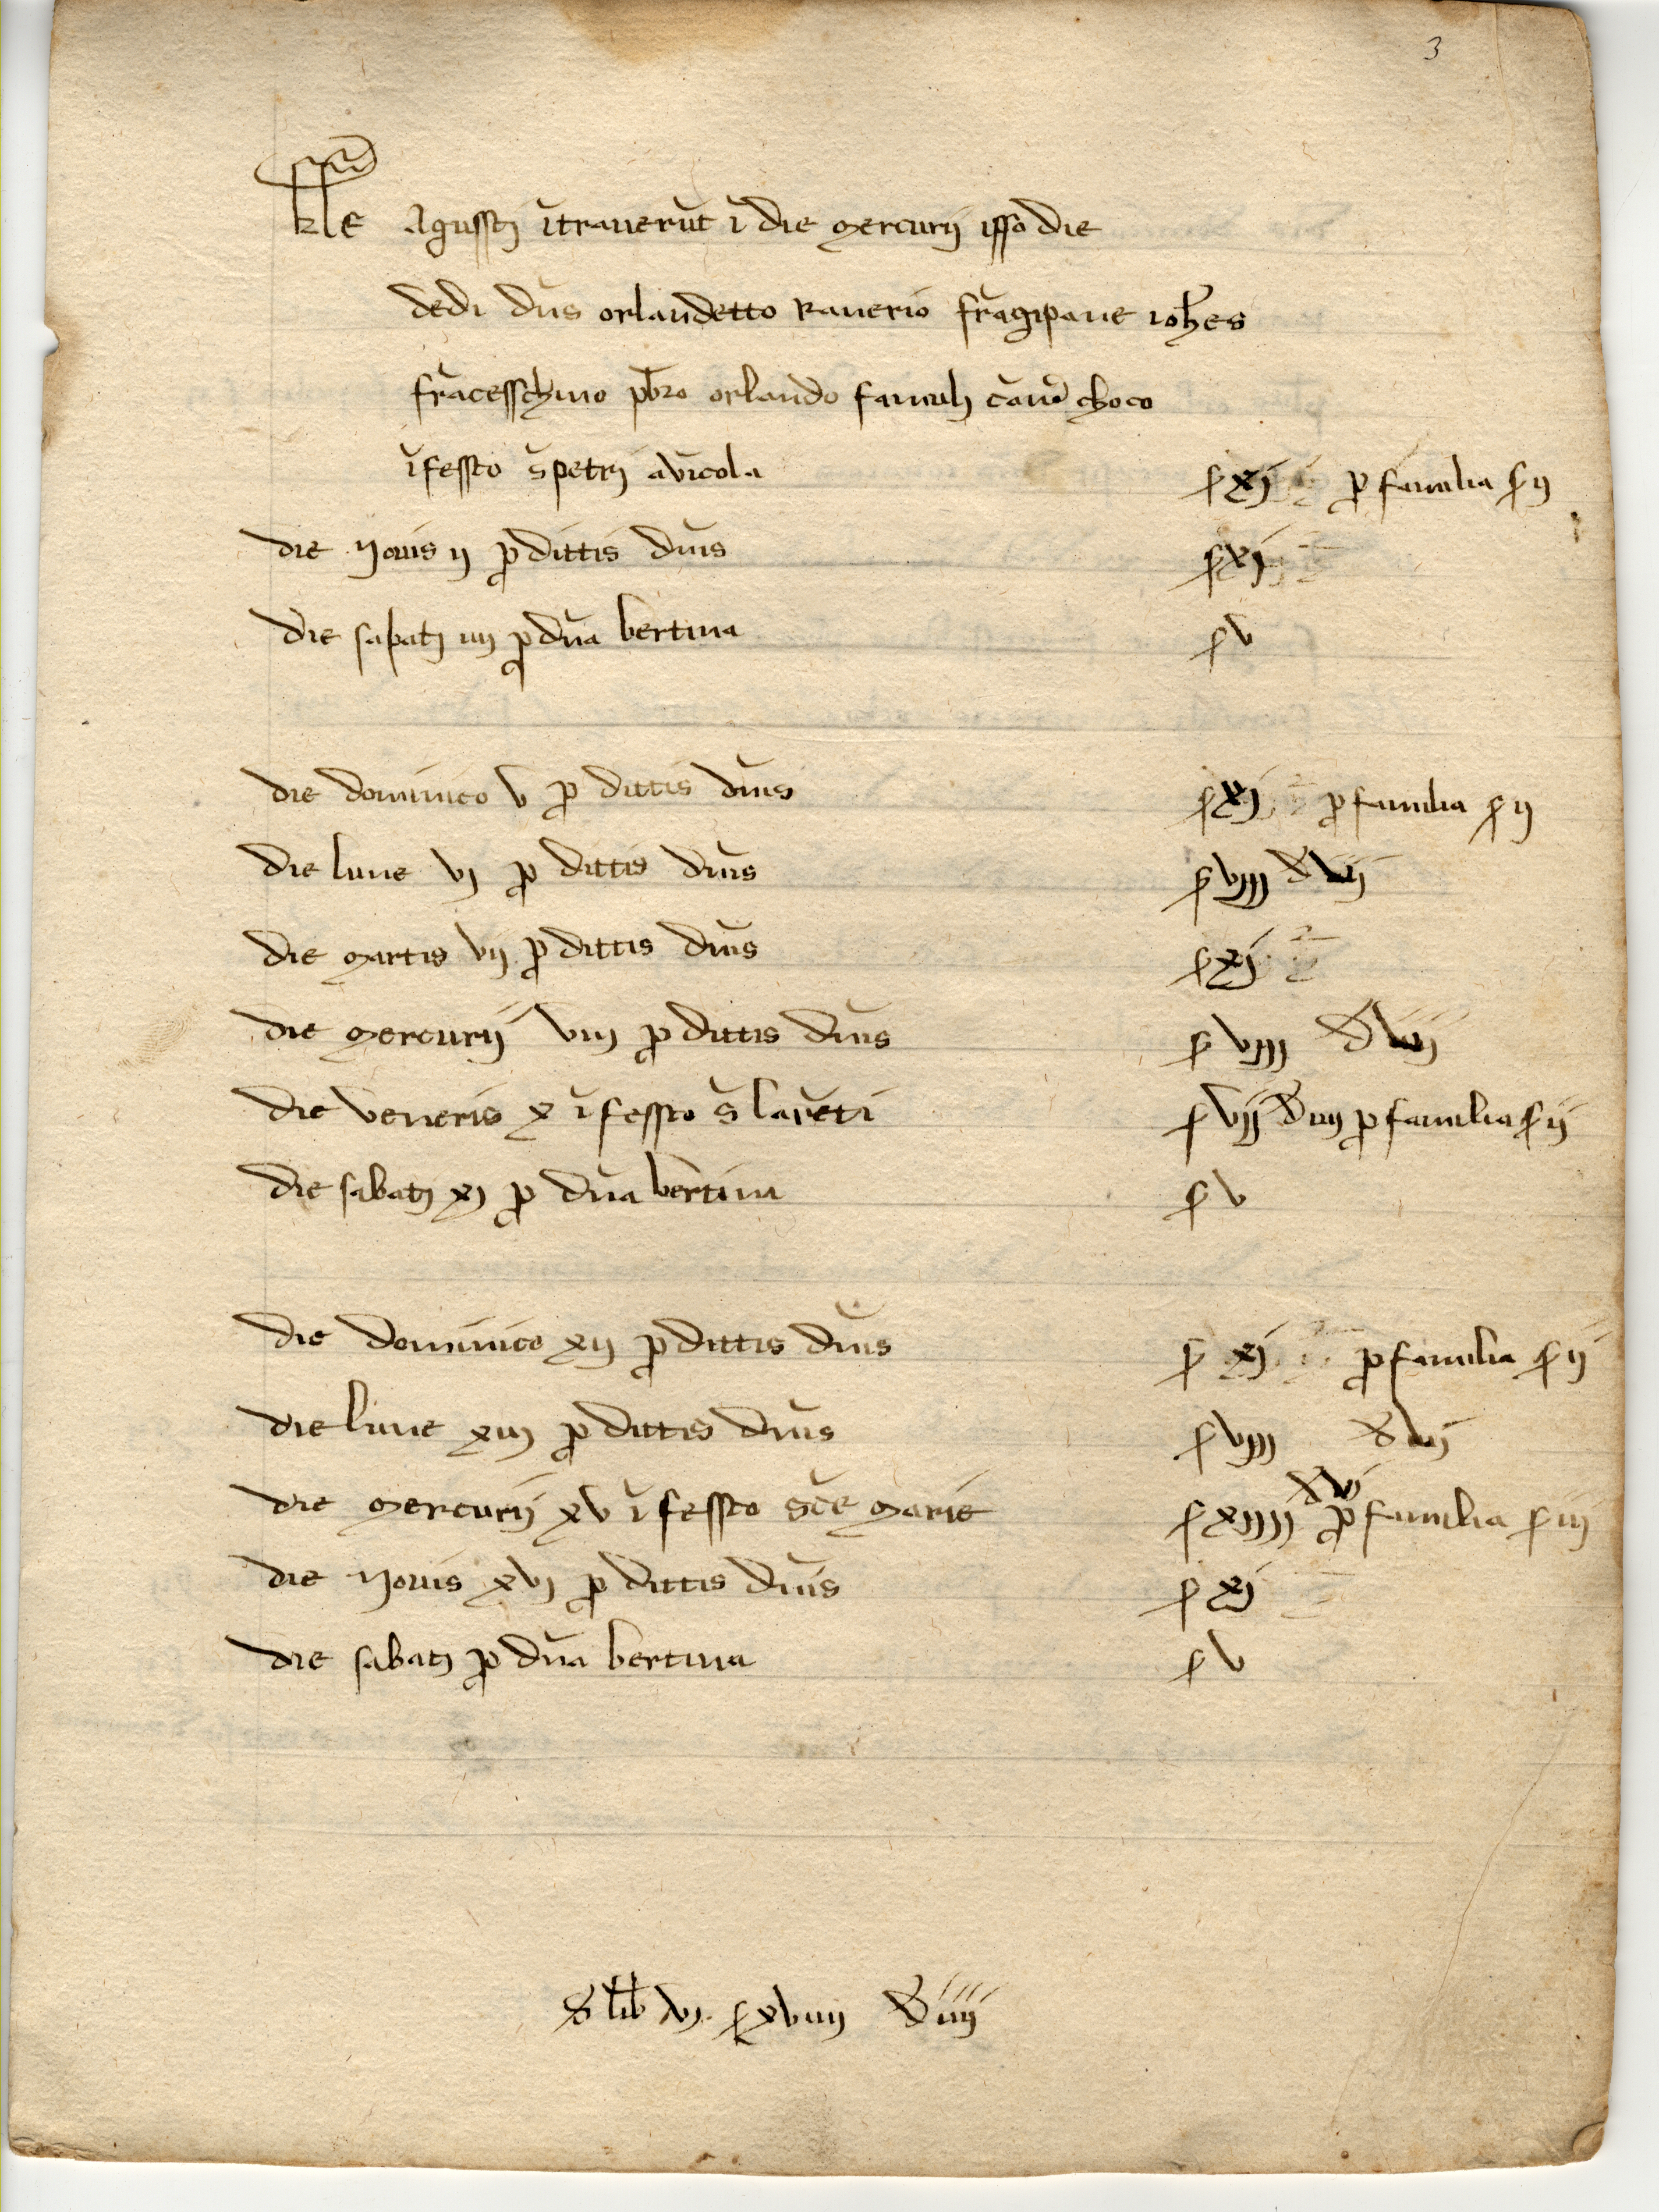 3
kl̄e Agussti ītraverūt ī die mercurij isso die
dedi dn̄s orlandetto Ranerio frāgipane ioh̄es
frācesschino pb̄ro orlando famuli cāv̄ choco
ī fessto s̄ petri avīcola s xj ꝓ familia s ij
die Jovis ij ꝓ dittis dnīs s xj
die sabati iiij ꝓ dn̄a bertina s v
die dominico v ꝓ dittis dnīs s xj ꝓ familia s ij
die lune vj ꝓ dittis dnīs s viiij d vij
die martis vij ꝓ dittis dnīs s xj
die mercurij viij ꝓ dittis dnīs s viiij d
die veneris x ī fessto s̄ laurēti s vij d iiij ꝓ familia s ij
die sabati xj ꝓ dn̄a bertina s v
die dominico xij ꝓ dittis dnīs s xj ꝓ familia s ij
die lune xiij ꝓ dittis dnīs s viiij d
die mercurij xv ī fessto sc̄e marie s xiiiij d vj ꝓ familia s iij
die Jovis xvj ꝓ dittis dnīs s xj
die sabati ꝓ dn̄a bertina s v
S lib vj s xviiij d iiij